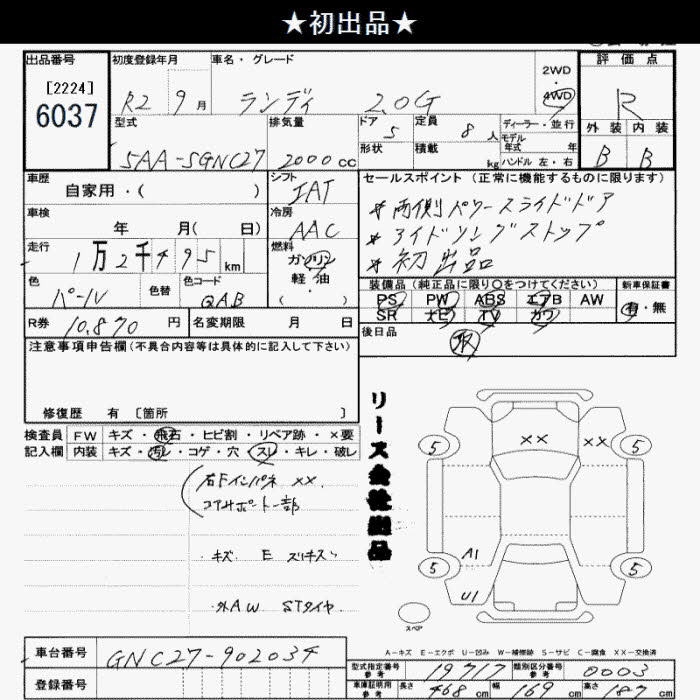 ★初出品★
出品番号
[2224]
6037
初度登録年月
R2 9月
車名・グレード
ランディ 2.0G
2WD
・
4WD
評価点
R
外装 内装
B B
型式
5AA-SGNC27
排気量
2000cc
ドア
5
形状
定員
8人
積載
kg
ディーラー・並行
モデル
年式 年
ハンドル 左・右
車歴
自家用・( )
シフト
IAT
車検
年 月( 日)
冷房
AAC
走行
1万2千495km
燃料
ガソリン
軽油
( ・ )
色
パール
色替
色コード
QAB
R券 10,870円
名変期限 月 日
セールスポイント(正常に機能するものに限ります)
*両側パワースライドドア
*アイドリングストップ
*初出品
装備品(純正品に限り○をつけてください)
PS PW ABS エアB AW
SR ナビ TV カワ
新車保証書
有・無
後日品
取
注意事項申告欄(不具合内容等は具体的に記入して下さい)
修復歴 有〔箇所 〕
検査員
記入欄
FW キズ・飛石・ヒビ割・リペア跡・×要
内装 キズ・汚レ・コゲ・穴・スレ・キレ・破レ
右Fインパネ ××
コアサポート一部
・キズ E ズリキズ
・外AW STタイヤ
リース会社出品
××
××
5
5
5
5
A1
U1
スペア
A-キズ E-エクボ U-凹み W-補修跡 S-サビ C-腐食 XX-交換済
車台番号
GNC27-902034
登録番号
型式指定番号
参考
19717
類別区分番号
参考
0003
車庫証明用
参考
長さ 468cm
幅 169cm
高さ 187cm